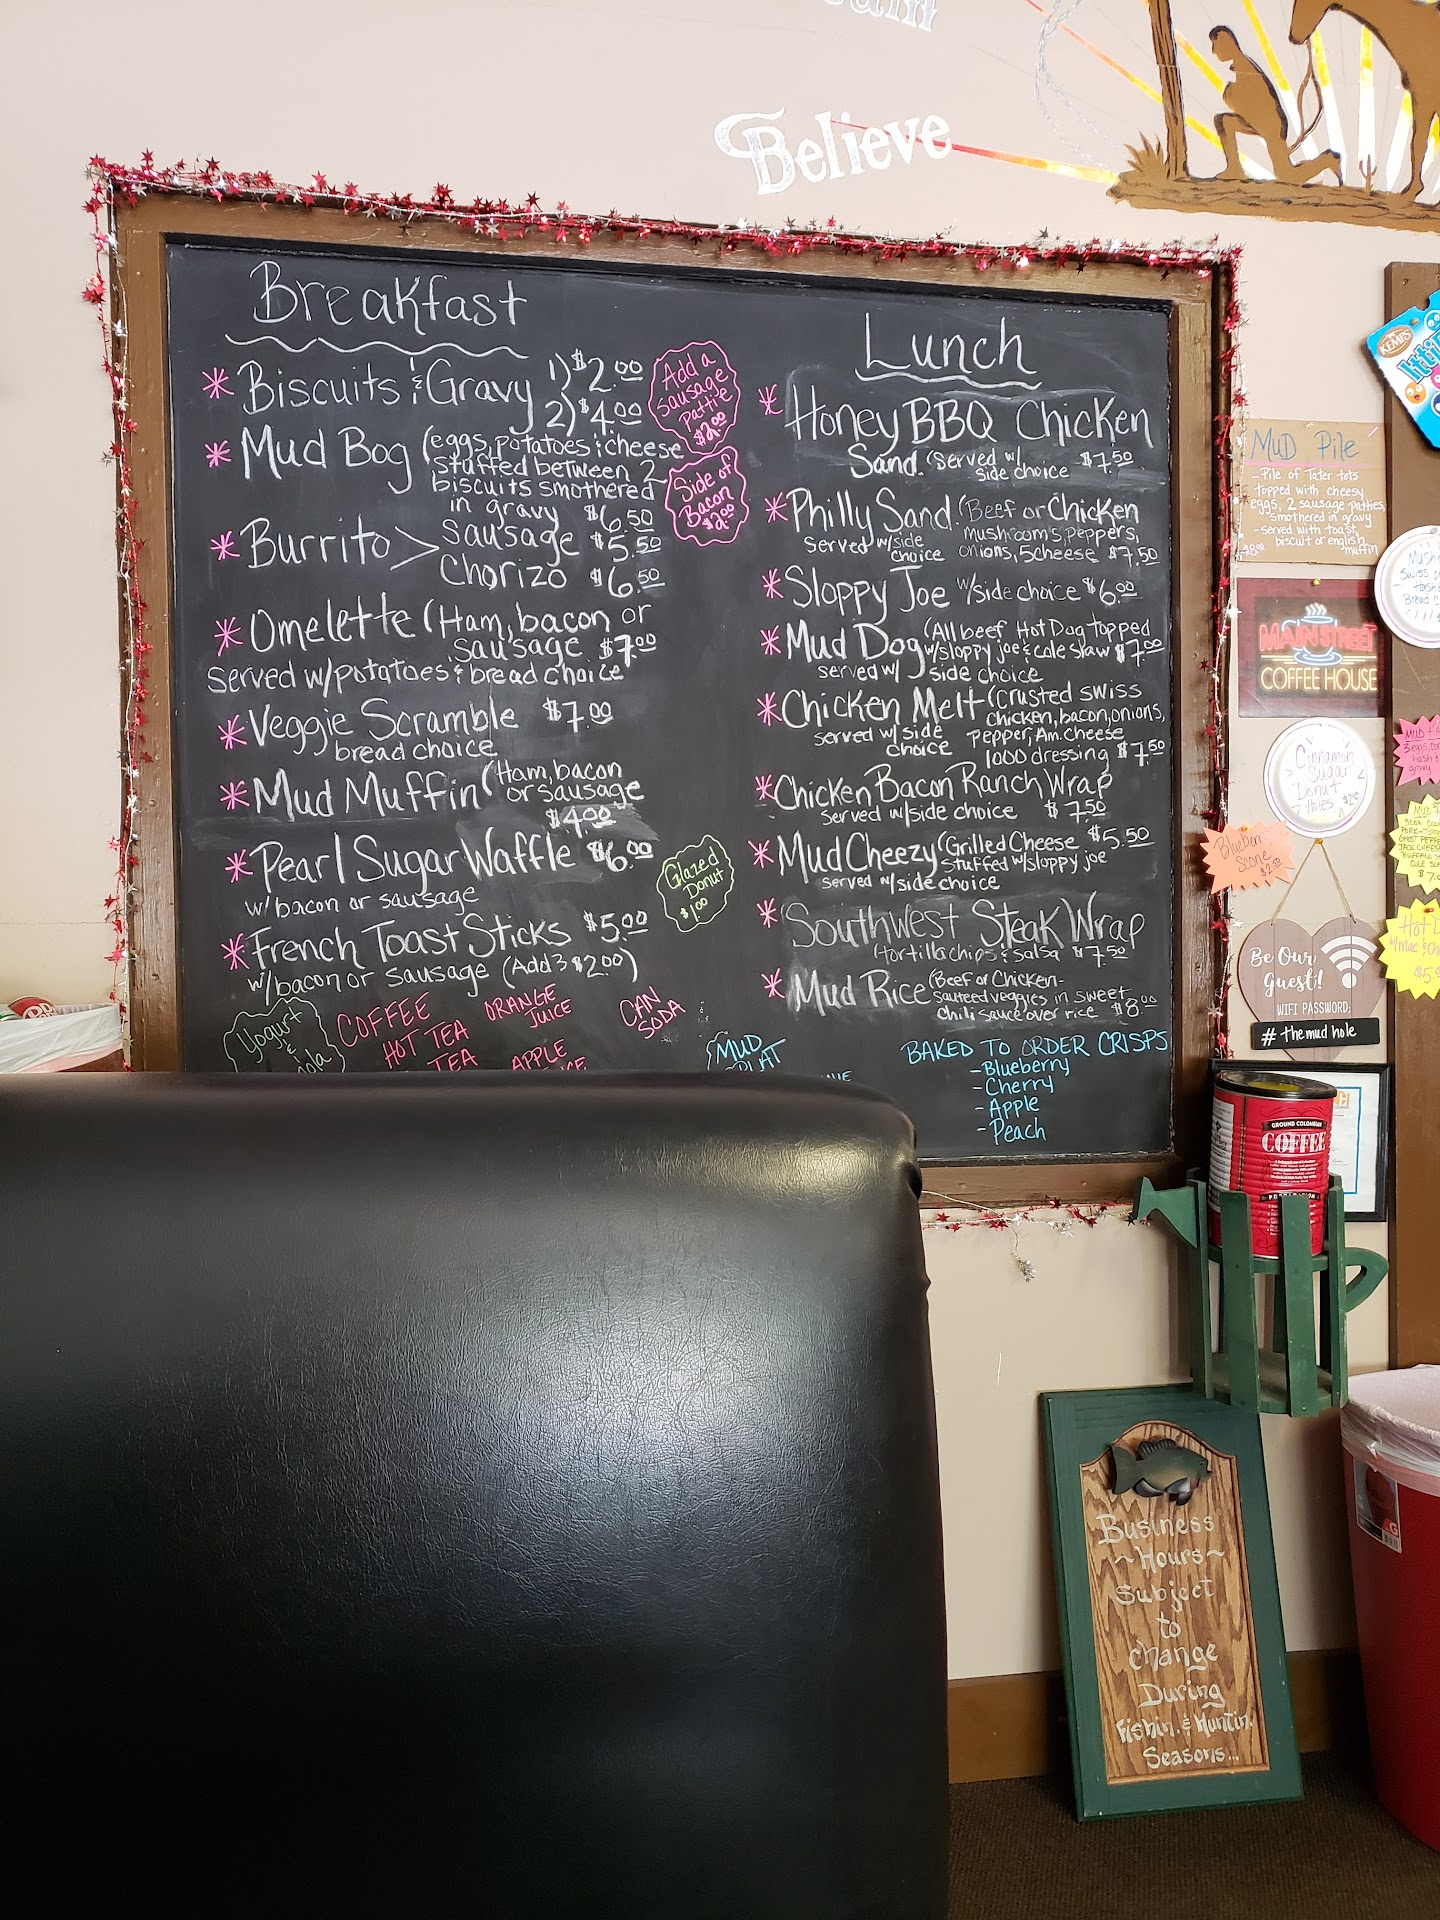 Believe
Breakfast
* Biscuits & Gravy 1) $2.00
2) $4.00
* Mud Bog (eggs, potatoes & cheese
stuffed between 2
biscuits smothered
in gravy $6.50
* Burrito > sausage $5.50
Chorizo $6.50
* Omelette (Ham, bacon or
sausage $7.00
served w/potatoes & bread choice
* Veggie Scramble $7.00
bread choice
* Mud Muffin (Ham, bacon
or sausage
$4.00
* Pearl Sugar Waffle $6.00
w/bacon or sausage
* French Toast Sticks $5.00
w/bacon or sausage (Add 3 $2.00)
Add a
sausage
pattie
$2.00
Side of
Bacon
$2.00
Glazed
Donut
$1.00
Yogurt
&
COFFEE
HOT TEA
TEA
ORANGE
JUICE
APPLE
CAN
SODA
Lunch
* Honey BBQ Chicken
Sand. (Served w/
side choice $7.50
* Philly Sand. (Beef or Chicken
mushrooms, peppers,
onions, 5cheese $7.50
served w/side
choice
* Sloppy Joe w/side choice $6.00
* Mud Dog (All beef Hot Dog topped
w/sloppy joe & cole slaw $7.00
served w/ side choice
* Chicken Melt (Crusted swiss
chicken, bacon, onions,
pepper, Am. cheese
1000 dressing $7.50
served w/ side
choice
* Chicken Bacon Ranch Wrap
served w/side choice $7.50
* Mud Cheezy (Grilled Cheese $5.50
stuffed w/sloppy joe
served w/side choice
* Southwest Steak Wrap
(tortilla chips & salsa $7.50
* Mud Rice (Beef or Chicken-
sauteed veggies in sweet
chili sauce over rice $8.00
MUD
BAKED TO ORDER CRISPS
- Blueberry
- Cherry
- Apple
- Peach
KEMPS
MUD PILE
- Pile of Tater tots
topped with cheesy
eggs, 2 sausage patties,
smothered in gravy
- served with toast,
biscuit or english
muffin
MAIN STREET
COFFEE HOUSE
Cinnamon
Sugar
Donut
Holes
Scone
$2.50
Be Our
Guest!
WIFI PASSWORD:
# the mud hole
GROUND COLOMBIAN
COFFEE
Business
~ Hours ~
Subject
to
Change
During
Fishin. & Huntin.
Seasons...